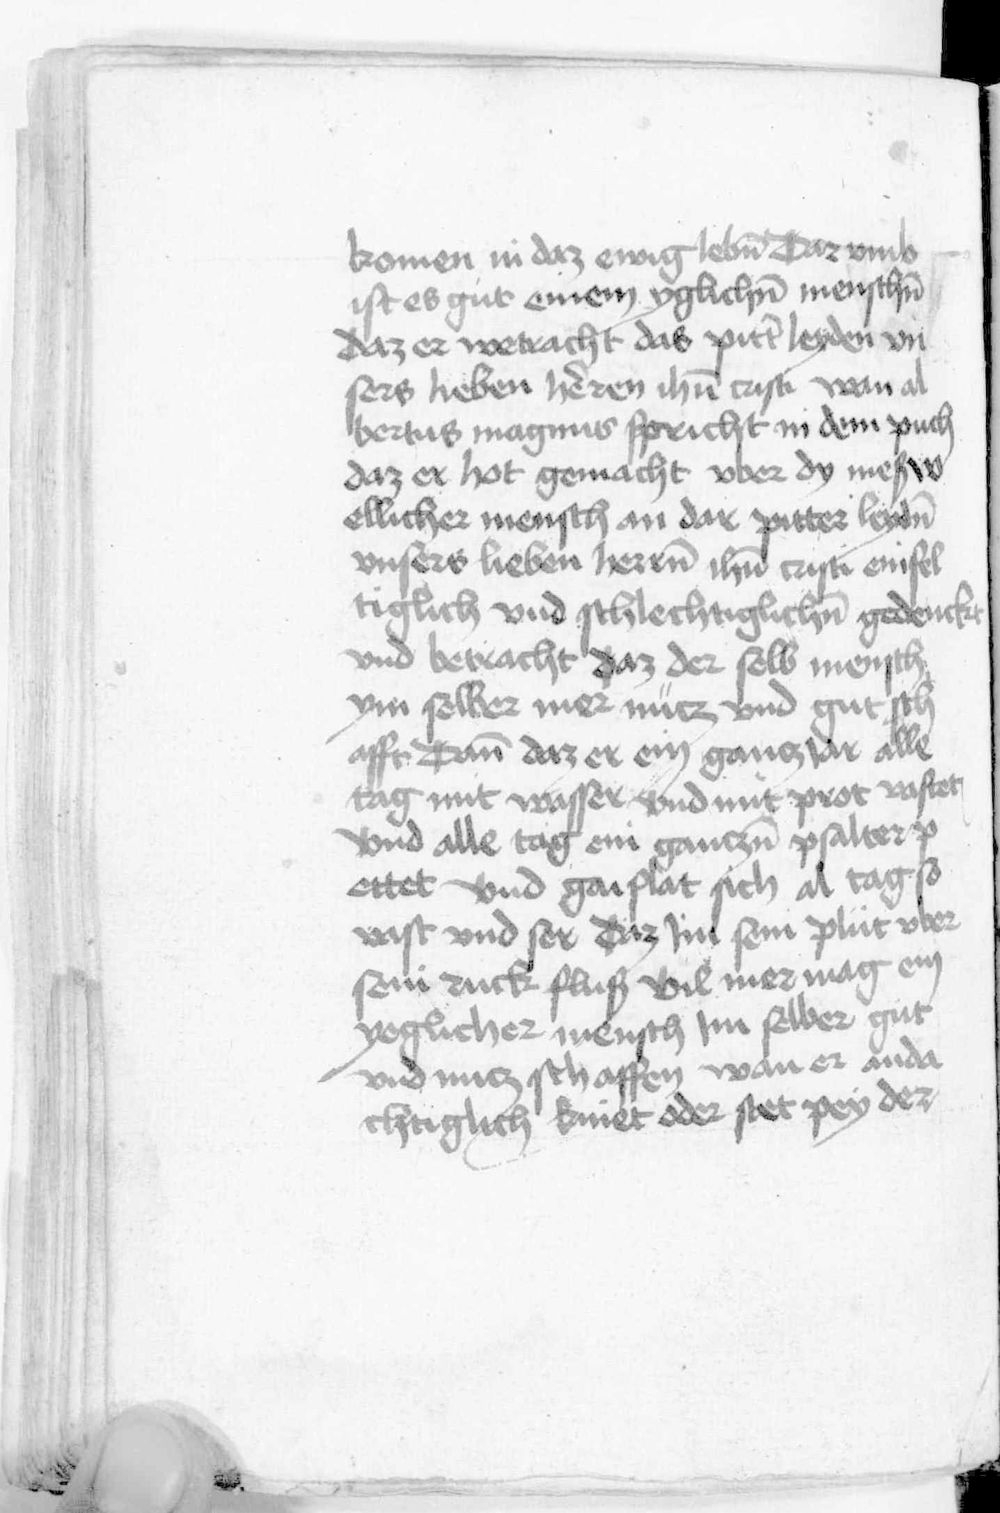 komen in daz ewig lebn̄ Dar vmb
ist es gut einem yglichn̄ menschn̄
daz er wetracht das pitt̄ leyden vn
sers lieben heren ihū cristi wan al
bertus magnus spricht in dem puch
daz er hot gemacht vber dy meß w
ellicher mensch an dar pitter leydn̄
vnsers lieben herrn̄ ihū cristi einfel
tiglich vnd schlechtiglichn̄ gedenckt
vnd betracht daz der selb mensch
ym selber mer nücz vnd gut sch
afft Dan̄ daz er ein gancz Jar alle
tag mit wasser vnd mit prot vastet
vnd alle tag ein ganczn̄ psalter p
ettet vnd gaislat sich al tag so
vast vnd ser Daz Jm sein plüt vber
sein ruck fluß Vil mer mag ein
yeglicher mensch Jm selber gut
vnd nucz schaffen wan er anda
chtiglich kniet oder stet pey der